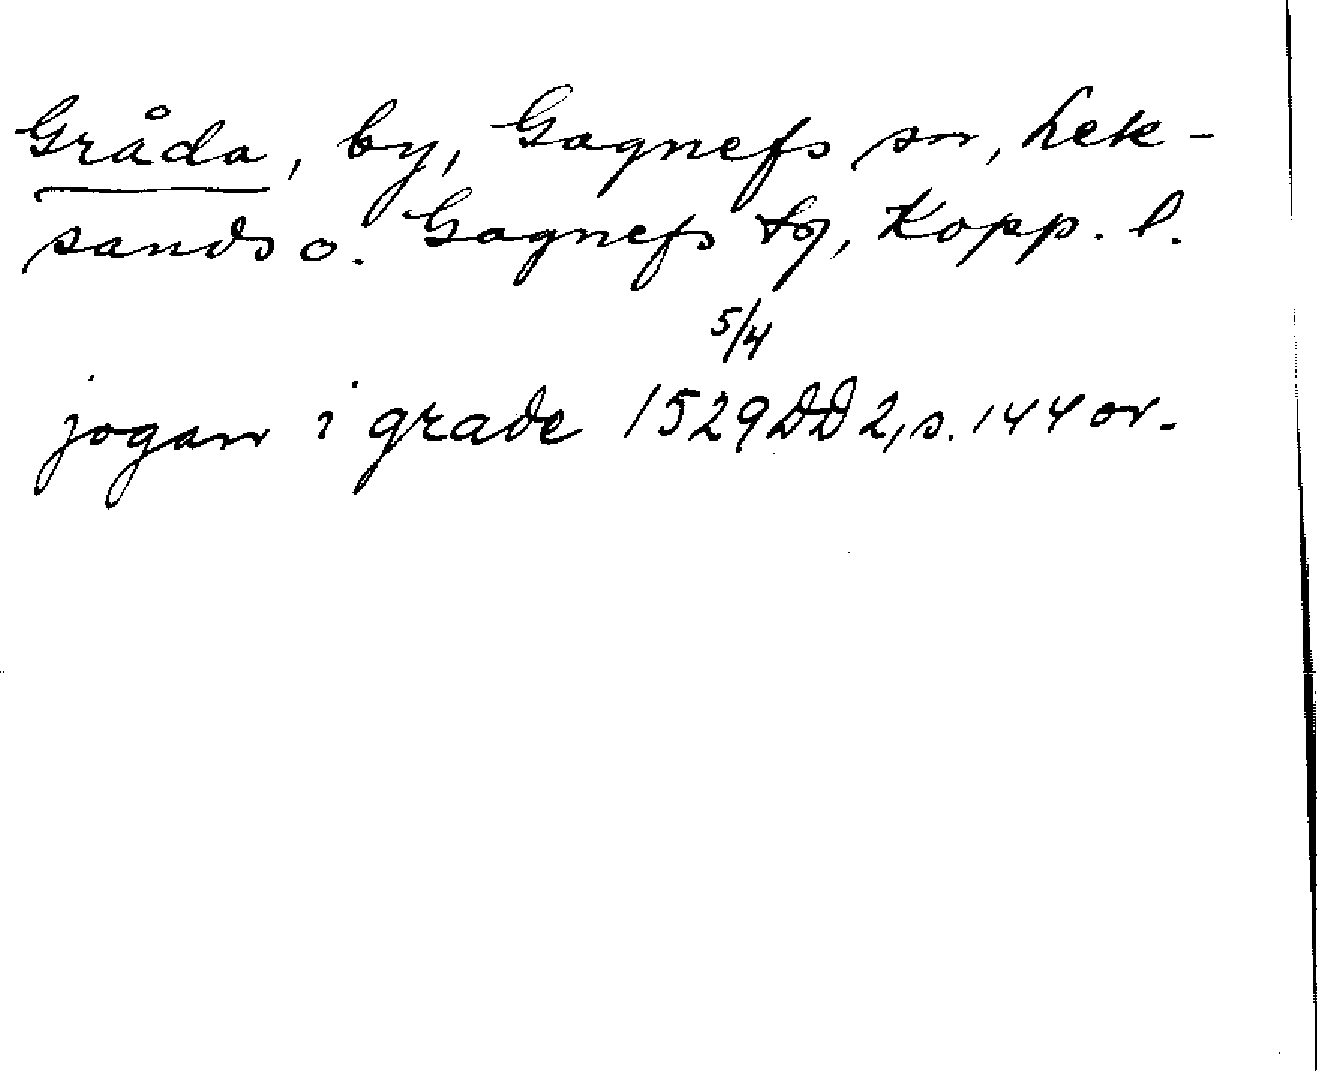 Gråda, by, Gagnefs sn, Lek-
sands o. Gagnefs tg, Kopp. l.
5/4
jogan i grade 1529 DD 2, s. 144 or.